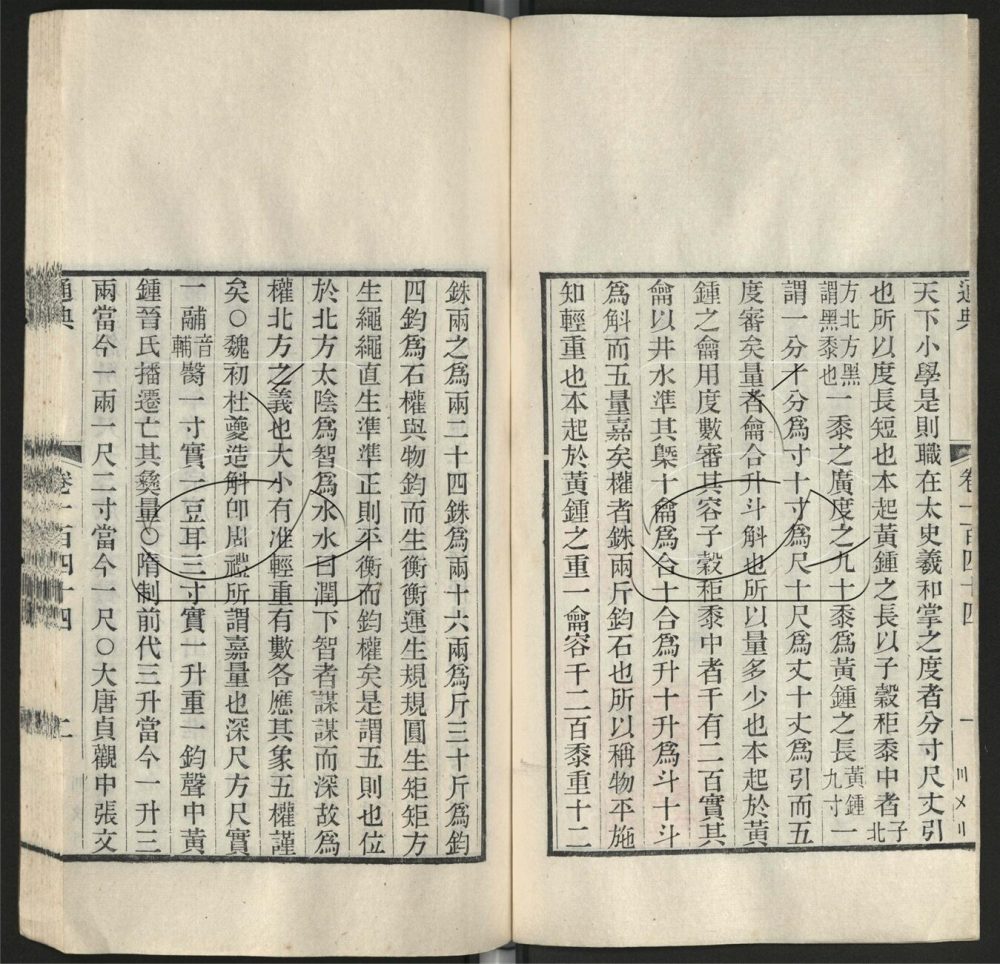 通典
卷一百四十四
一
天下小學是則職在太史羲和掌之度者分寸尺丈引
也所以度長短也本起黃鍾之長以子穀秬黍中者子北
方北方黑謂黑黍也一黍之廣度之九十黍爲黃鍾之長黃鍾九寸一
謂一分十分爲寸十寸爲尺十尺爲丈十丈爲引而五
度審矣量者龠合升斗斛也所以量多少也本起於黃
鍾之龠用度數審其容子穀秬黍中者千有二百實其
龠以井水準其槩十龠爲合十合爲升十升爲斗十斗
爲斛而五量嘉矣權者銖兩斤鈞石也所以稱物平施
知輕重也本起於黃鍾之重一龠容千二百黍重十二
銖兩之爲兩二十四銖爲兩十六兩爲斤三十斤爲鈞
四鈞爲石權與物鈞而生衡衡運生規規圓生矩矩方
生繩繩直生準準正則平衡而鈞權矣是謂五則也位
於北方太陰爲智爲水水曰潤下智者謀謀而深故爲
權北方之義也大小有准輕重有數各應其象五權謹
矣○魏初杜夔造斛卽周禮所謂嘉量也深尺方尺實
一鬴音輔臀一寸實一豆耳三寸實一升重一鈞聲中黃
鍾晉氏播遷亡其彝量○隋制前代三升當今一升三
兩當今一兩一尺二寸當今一尺○大唐貞觀中張文
通典
卷一百四十四
二